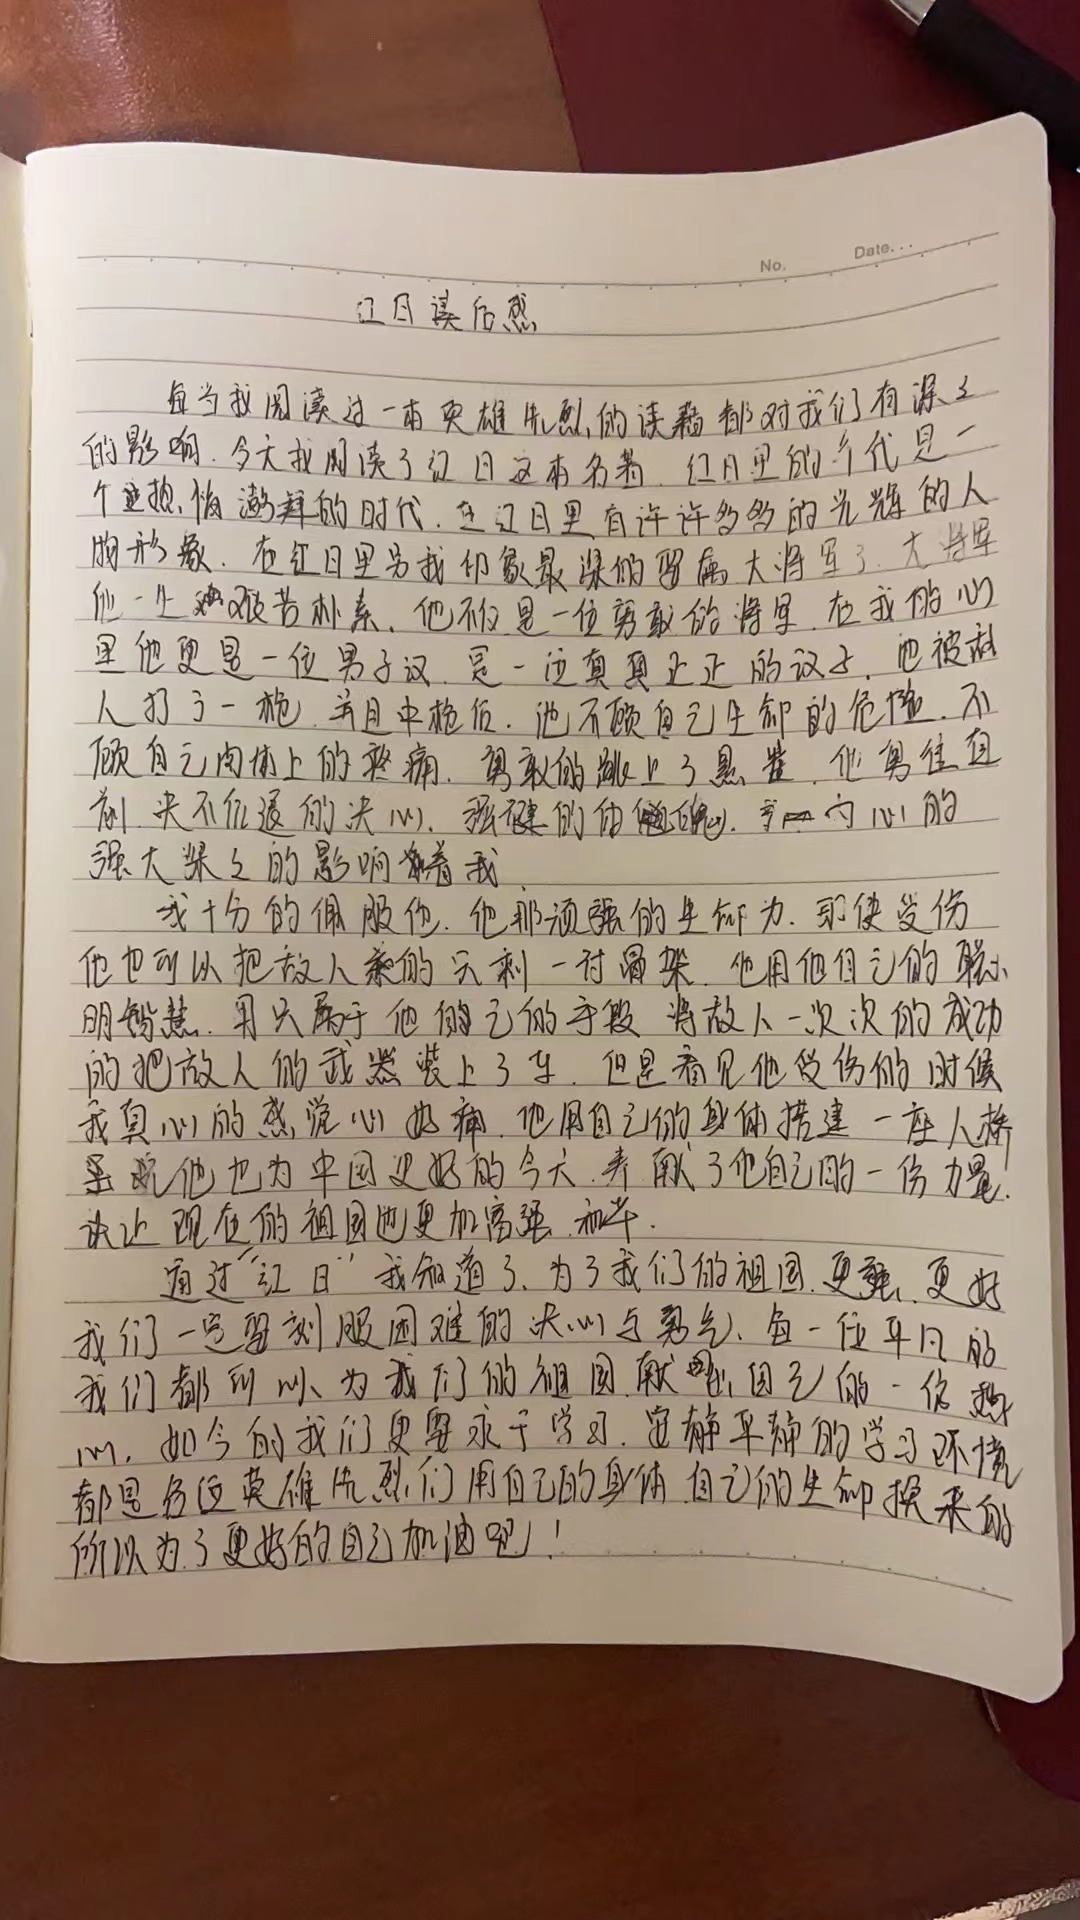 No. Date...
红日读后感
每当我阅读过一本英雄先烈的读藉都对我们有深深
的影响.今天我阅读了红日这本名著.红日里的年代是一
个 澎拜的时代.在红日里有许许多多的光辉的人
物形象.在红日里另我印象最深的要属大将军了.大将军
他一生艰苦朴素.他不仅是一位勇敢的将军.在我的心
里他更是一位男子汉.是一位真真正正的汉子.他被敌
人打了一枪.并且中枪后.他不顾自己生命的危险.不
顾自己肉体上的疼痛.勇敢的跳上了悬崖.他勇往直
前.决不后退的决心.强健的体魄.和内心的
强大深深的影响着我.
我十分的佩服他.他那顽强的生命力.即使受伤
他也可以把敌人杀的只剩一讨骨架.他用他自己的聪
明智慧.用只属于他自己的手段将敌人一次次的成功
的把敌人的武器装上了车.但是看见他受伤的时候
我真心的感觉心好痛.他用自己的身体搭建一座人桥
他也为中国更好的今天.奉献了他自己的一份力量.
决让现在的祖国也更加富强.和平.
通过"红日"我知道了.为了我们的祖国.更强.更好
我们一定要刻服困难的决心与勇气.每一位平凡的
我们都可以.为我们的祖国.献出自己的一份热
心.如今的我们更要求于学习.安静平静的学习环境
都是各位英雄先烈们用自己的身体.自己的生命换来的
所以为了更好的自己加油吧!